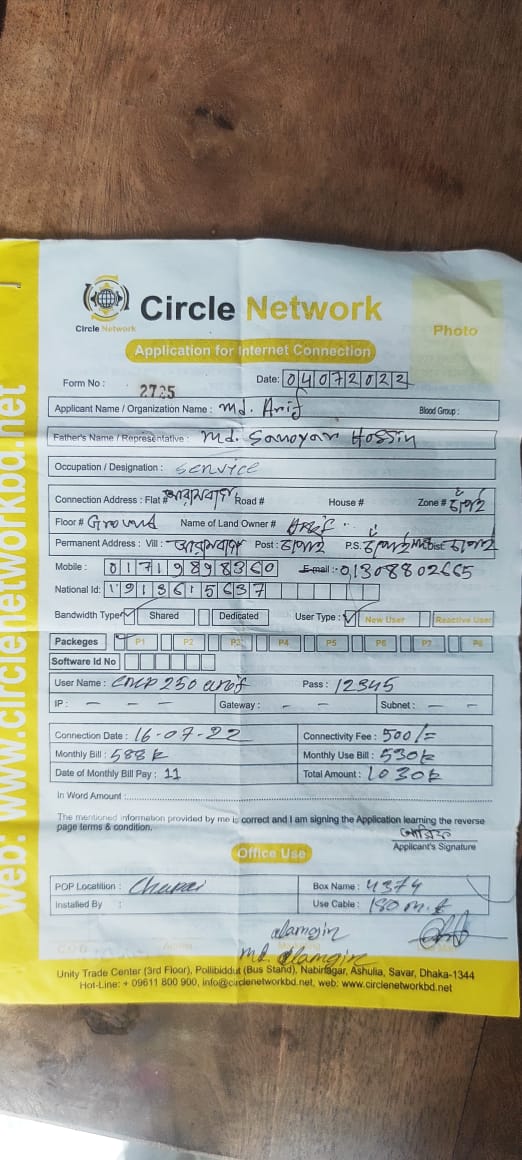 Circle Network
Circle Network
Photo
Application for Internet Connection
Form No : 2725 Date: 04072022
Applicant Name / Organization Name : Md. Arif Blood Group :
Father's Name / Representative : Md. Sanoyar Hossin
Occupation / Designation : Service
Connection Address : Flat # আরামবাগ Road # House # Zone #
Floor # Ground Name of Land Owner #
Permanent Address : Vill : আরামবাগ Post : P.S. Dist
Mobile : 01719898360 E-mail : 01308802665
National Id: 1913615637
Bandwidth Type Shared Dedicated User Type : New User Reactive User
Packeges P1 P2 P3 P4 P5 P6 P7 P8
Software Id No
User Name : Pass : 12345
IP : - - - Gateway : - - Subnet : - -
Connection Date : 16-07-22 Connectivity Fee : 500/=
Monthly Bill : 588 Monthly Use Bill : 530
Date of Monthly Bill Pay : 11 Total Amount : 1030
In Word Amount :
The mentioned information provided by me is correct and I am signing the Application learning the reverse
page terms & condition.
আরিফ
Applicant's Signature
Office Use
POP Location : Chapai Box Name : 4374
Installed By : Use Cable : 180 m.
alamgin
md. alamgin
Unity Trade Center (3rd Floor), Pollibiddut (Bus Stand), Nabinagar, Ashulia, Savar, Dhaka-1344
Hot-Line: + 09611 800 900, info@circlenetworkbd.net, web: www.circlenetworkbd.net
web: www.circlenetworkbd.net